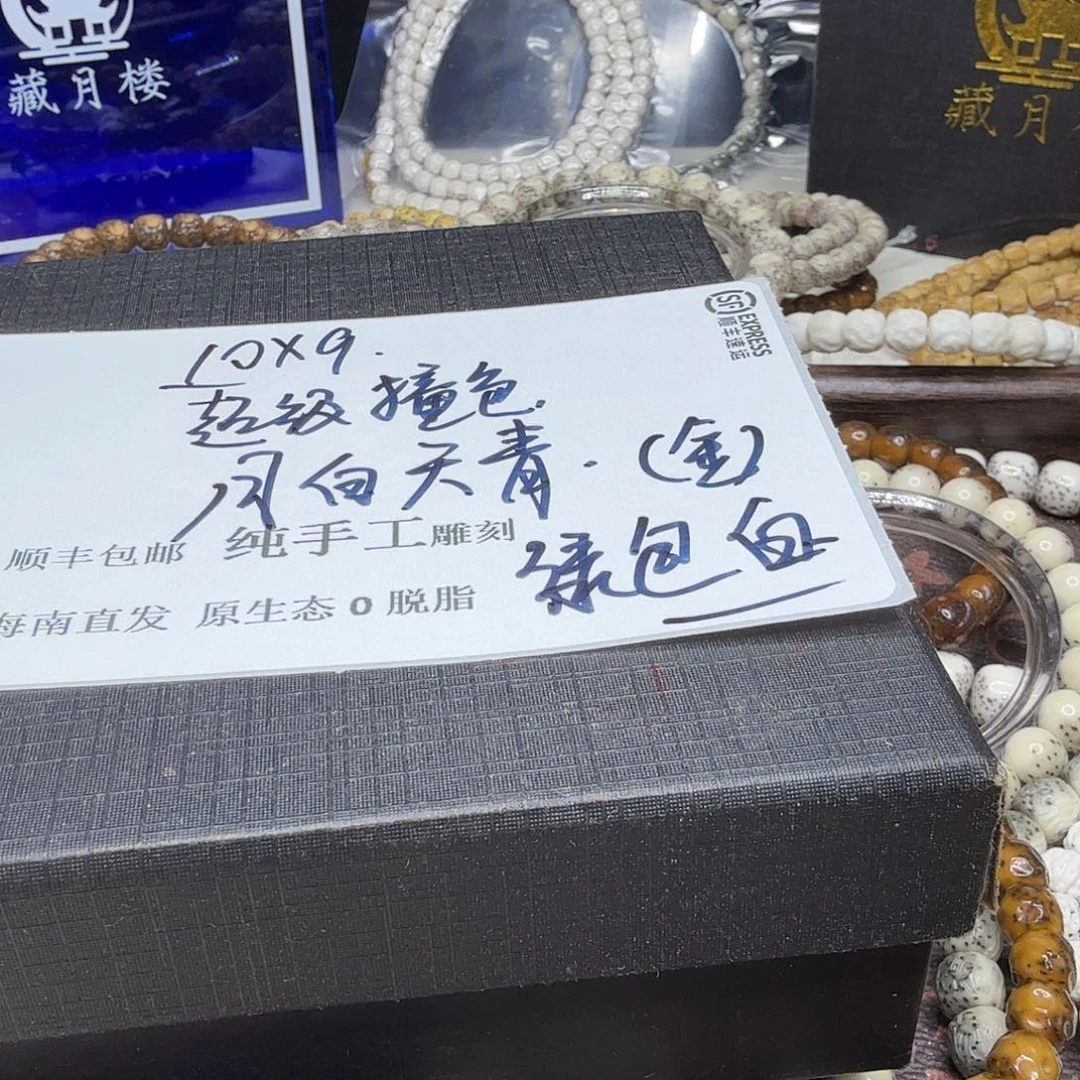 藏月楼
藏月
SF EXPRESS
顺丰速运
10X9.
超级撞色.
月白天青.(金)
绿包白
顺丰包邮 纯手工雕刻
海南直发 原生态0脱脂